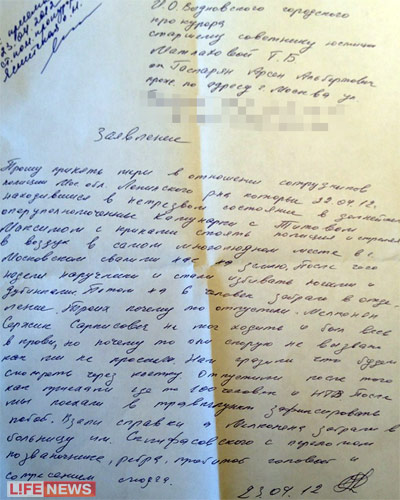 И.О. Видновского городского
прокурора
старшему советнику юстиции
Матлаховой Г.Б
от Гаспарян Арсен Альбертович
прож. по адресу г. Москва ул
Заявление
Прошу принять меры в отношении сотрудников
полиции Мос. обл. Ленинского р-на которые 22.04.12.
находившиеся в нетрезвом состояние
оперуполномоченные Коммунарки с Титовым
Максимом с криками стоять полиция и стреляя
в воздух в самом многолюдном месте в г.
Московском свалили нас на землю, После чего
надели наручники и стали избивать ногами и
дубинками. Потом из человек забрали в отде-
ление. Троих почему то отпустили. Мелконян
Сержик Саркисович не мог ходить и был весь
в крови, но почему то они скорую не вызвали
как мы не просили. Нам грозили что будем
смотреть через клетку. Отпустили после того
как приехали где то 600 человек и НТВ. После
мы поехали в травмпункт зафиксировать
побои. Взяли справки а Мелконяна забрали в
больницу им. Склифасовского с переломом
позвоночника, ребра, пробитой головой и
сотресением мозга.
23 04 12
LIFE NEWS